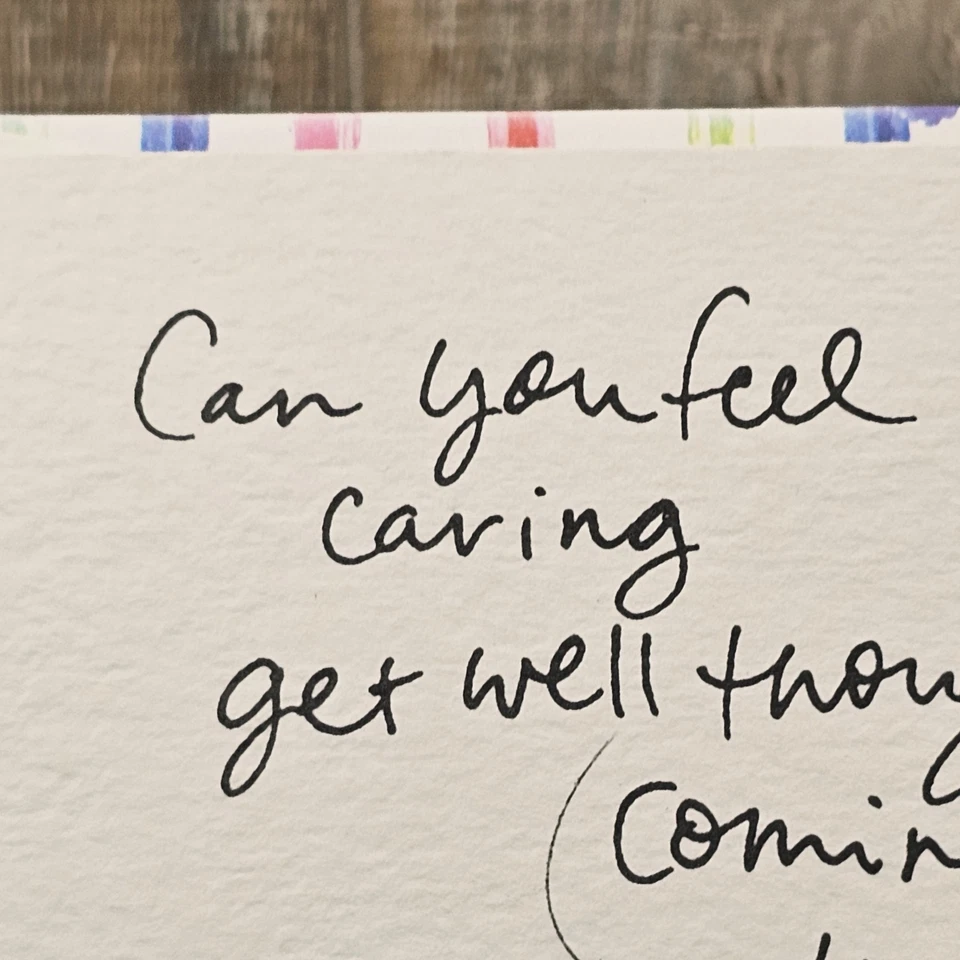 Can you feel
caring
get well thoug
comin